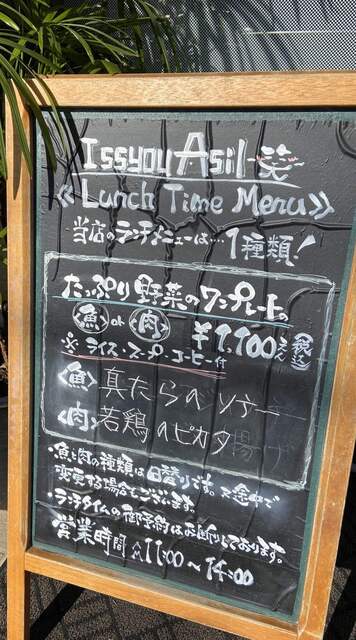 Issyou Asil 笑
《Lunch Time Menu》
当店のランチメニューは…1種類!
たっぷり野菜のワンプレート
魚 or 肉 ¥1,100えん(税込)
※ライス・スープ・コーヒー付
〈魚〉真たらのソテー
〈肉〉若鶏のピカタ
・魚と肉の種類は日替りです。又途中で
変更する場合もございます。
・ランチタイムの御予約はお断りしております。
営業時間 AM11:00〜14:00